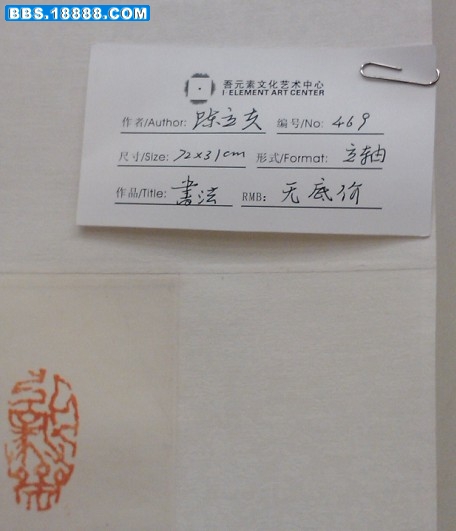 BBS.18888.COM
吾元素文化艺术中心
I·ELEMENT ART CENTER
作者/Author: 陈立夫 编号/No: 469
尺寸/Size: 72x31cm 形式/Format: 立轴
作品/Title: 書法 RMB: 无底价